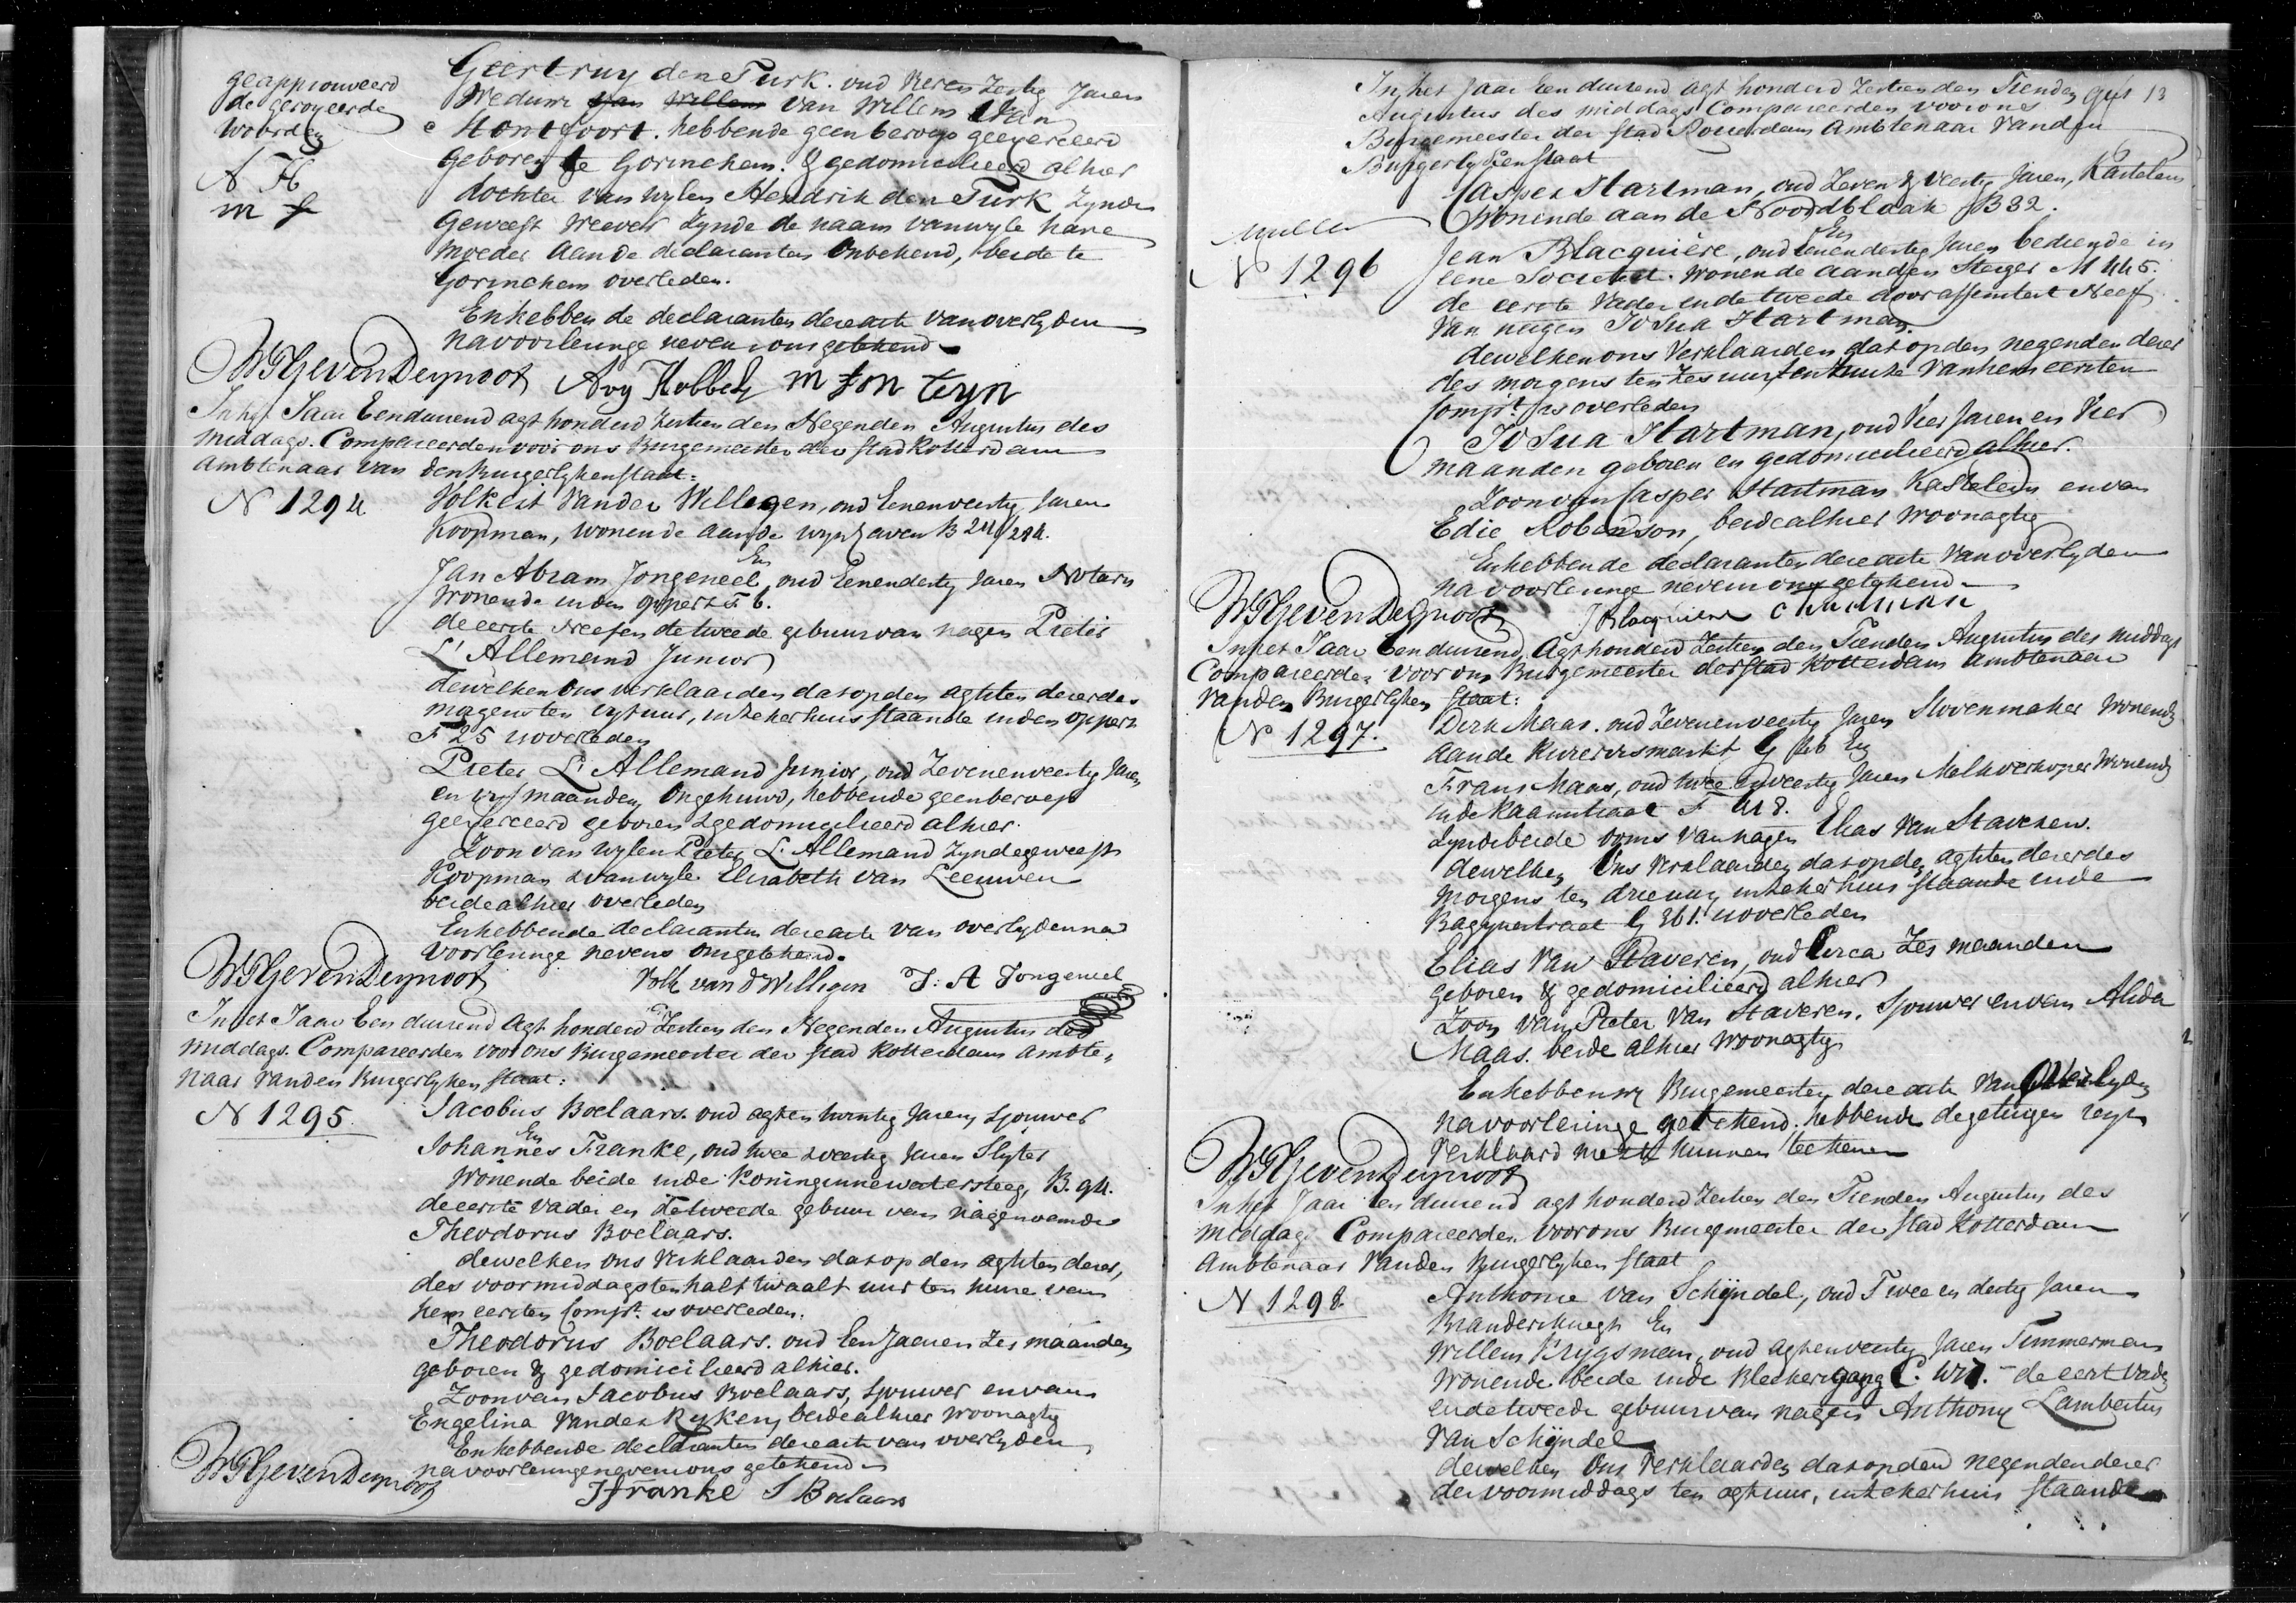 geapprouveerd
de geroyeerde
woorden
A H
m f
Geertruy den Turk. oud Zestig Jaren
Weduwe van Willem van Willem Van
Montfoort. hebbende geen beroep geexerceerd
Geboren te Gorinchem. & gedomicilieerd alhier
dochter van wylen Hendrik den Turk Zynde
Geweest Weever Zynde de naam van wyle hare
Moeder aan de declaranten Onbekend, beide te
Gorinchem overleden.
En hebben de declaranten dere acte van overlyden
na voorlezinge neven ons getekend
W F Gevers Deynoot Ary Hobbel m
In het Jaar Eenduizend agt honderd Zestien den Negenden Augustus des
middags. Compareerden voor ons Burgemeester der stad Rotterdam
Ambtenaar van den Burgerlyken staat:
N 1294
Volkert Vander Willegen, oud Eenenveertig Jaren
Koopman, wonende aan de wynhaven B
En
Jan Abram Jongeneel, oud Eenendertig Jaren Notaris
Wonende in den Oppert F 6.
de eerste Neef en de tweede gebuur van nagen Pieter
L'Allemand Junior
dewelken Ons verklaarden dat op den agtsten dezer des
morgens ten vyf uur, in zeker huis staande in den oppert
F 25 is overleden
Pieter L'Allemand Junior, oud Zevenenveertig Jaren
en vyf maanden, Ongehuwd, hebbende geen beroep
geexerceerd geboren & gedomicilieerd alhier.
Zoon van wylen Pieter L'Allemand Zynde geweest
Koopman & van wyle Elisabeth van Leeuwen
beide alhier overleden
En hebben de declaranten dere acte van overlyden na
voorlezinge nevens ons getekend.
W F Gevers Deynoot Volk van d Willigen J: A Jongeneel
In het Jaar Een duizend Agt honderd Zestien den Negenden Augustus des
middags. Compareerden voor ons Burgemeester der stad Rotterdam Ambte-
naar van den Burgerlyken staat:
N 1295.
Jacobus Boelaars. oud agt en twintig Jaren, Sjouwer
En
Johannes Franke, oud twee & veertig Jaren Slyter
Wonende beide in de Koninginnewatersteeg, B. 94.
de eerste vader en de tweede gebuur van nagenoemde
Theodorus Boelaars.
dewelken Ons Verklaarden dat op den agtsten dezer,
des voormiddags ten half twaalf uur ten huize van
hem eersten Compt. is overleden.
Theodorus Boelaars. oud Een Jaar en Zes maanden
geboren & gedomicilieerd alhier.
Zoon van Jacobus Boelaars, Sjouwer en van
Engelina Vander Kyken, beide alhier Woonagtig
En hebben de declaranten dere acte van overlyden
na voorlezinge neven ons getekend
W F Gevers Deynoot
J franke J Boelaars
In het Jaar Een duizend Agt honderd Zestien den Tienden 13
Augustus des middags Compareerden voor ons
Burgemeester der stad Rotterdam Ambtenaar Van den
Burgerlyken staat
Casper Hartman, oud Zeven & Veertig Jaren, Kastelein
Wonende aan de Noordblaak B 32.
N 1296
En
Jean Blacquière, oud Eenendertig Jaren bediende in
eene Societeit. Wonende aan den Steiger M 445.
de eerste Vader en de tweede door assentiment Neef
van nagen Josua Hartman.
dewelken ons Verklaarden dat op den negenden dezer
des morgens ten Zes uur ten huize Van hem eersten
Compt. is overleden
Josua Hartman, oud Vier Jaren en Vier
maanden geboren en gedomicilieerd alhier.
Zoon van Casper Hartman Kastelein en van
Edie Robenson, beide alhier Woonagtig
En hebben de declaranten dere acte Van overlyden
na voorlezinge neven ons getekend
W F Gevers Deynoot J Blacquiere C Hartman
In het Jaar Een duizend Agt honderd Zestien den Tienden Augustus des middags
Compareerden voor ons Burgemeester der stad Rotterdam Ambtenaar
van den Burgerlyken staat:
N 1297.
Dirk Maas. oud Zevenenveertig Jaren Stovenmaker Wonende
aan de markt G En
Frans Maas, oud twee en veertig Jaren Melkverkoper Wonende
in de Raamstraat F 418.
Zynde beide ooms van nagen Elias Van Staveren.
dewelken Ons Verklaarden dat op den agtsten dezer des
morgens ten drie uur, in zeker huis staande in de
Bagynestraat G 361. is overleden
Elias Van Staveren, oud Circa Zes maanden
geboren & gedomicilieerd alhier
Zoon van Pieter Van Staveren, Sjouwer en van Alida
Maas. beide alhier Woonagtig
En hebben wy Burgemeester dere acte Van Overlyden
na voorlezinge getekend. hebbende de getuigen
Verklaard niet te kunnen teekenen
W F Gevers Deynoot
In het Jaar Een duizend agt honderd Zestien den Tienden Augustus des
middags Compareerden voor ons Burgemeester der stad Rotterdam
Ambtenaar Van den Burgerlyken staat
N 1298.
Anthonie van Schijndel, oud Twee en dertig Jaren
Brandersknegt En
Willem Krygsman, oud agt en veertig Jaren Timmerman
Wonende beide in de Blekersgang C. de eerst Vader
en de tweede gebuur van nagen Anthony Lambertus
Van Schijndel
dewelken Ons Verklaarden dat op den negenden dezer
des voormiddags ten agt uur, in zeker huis staande